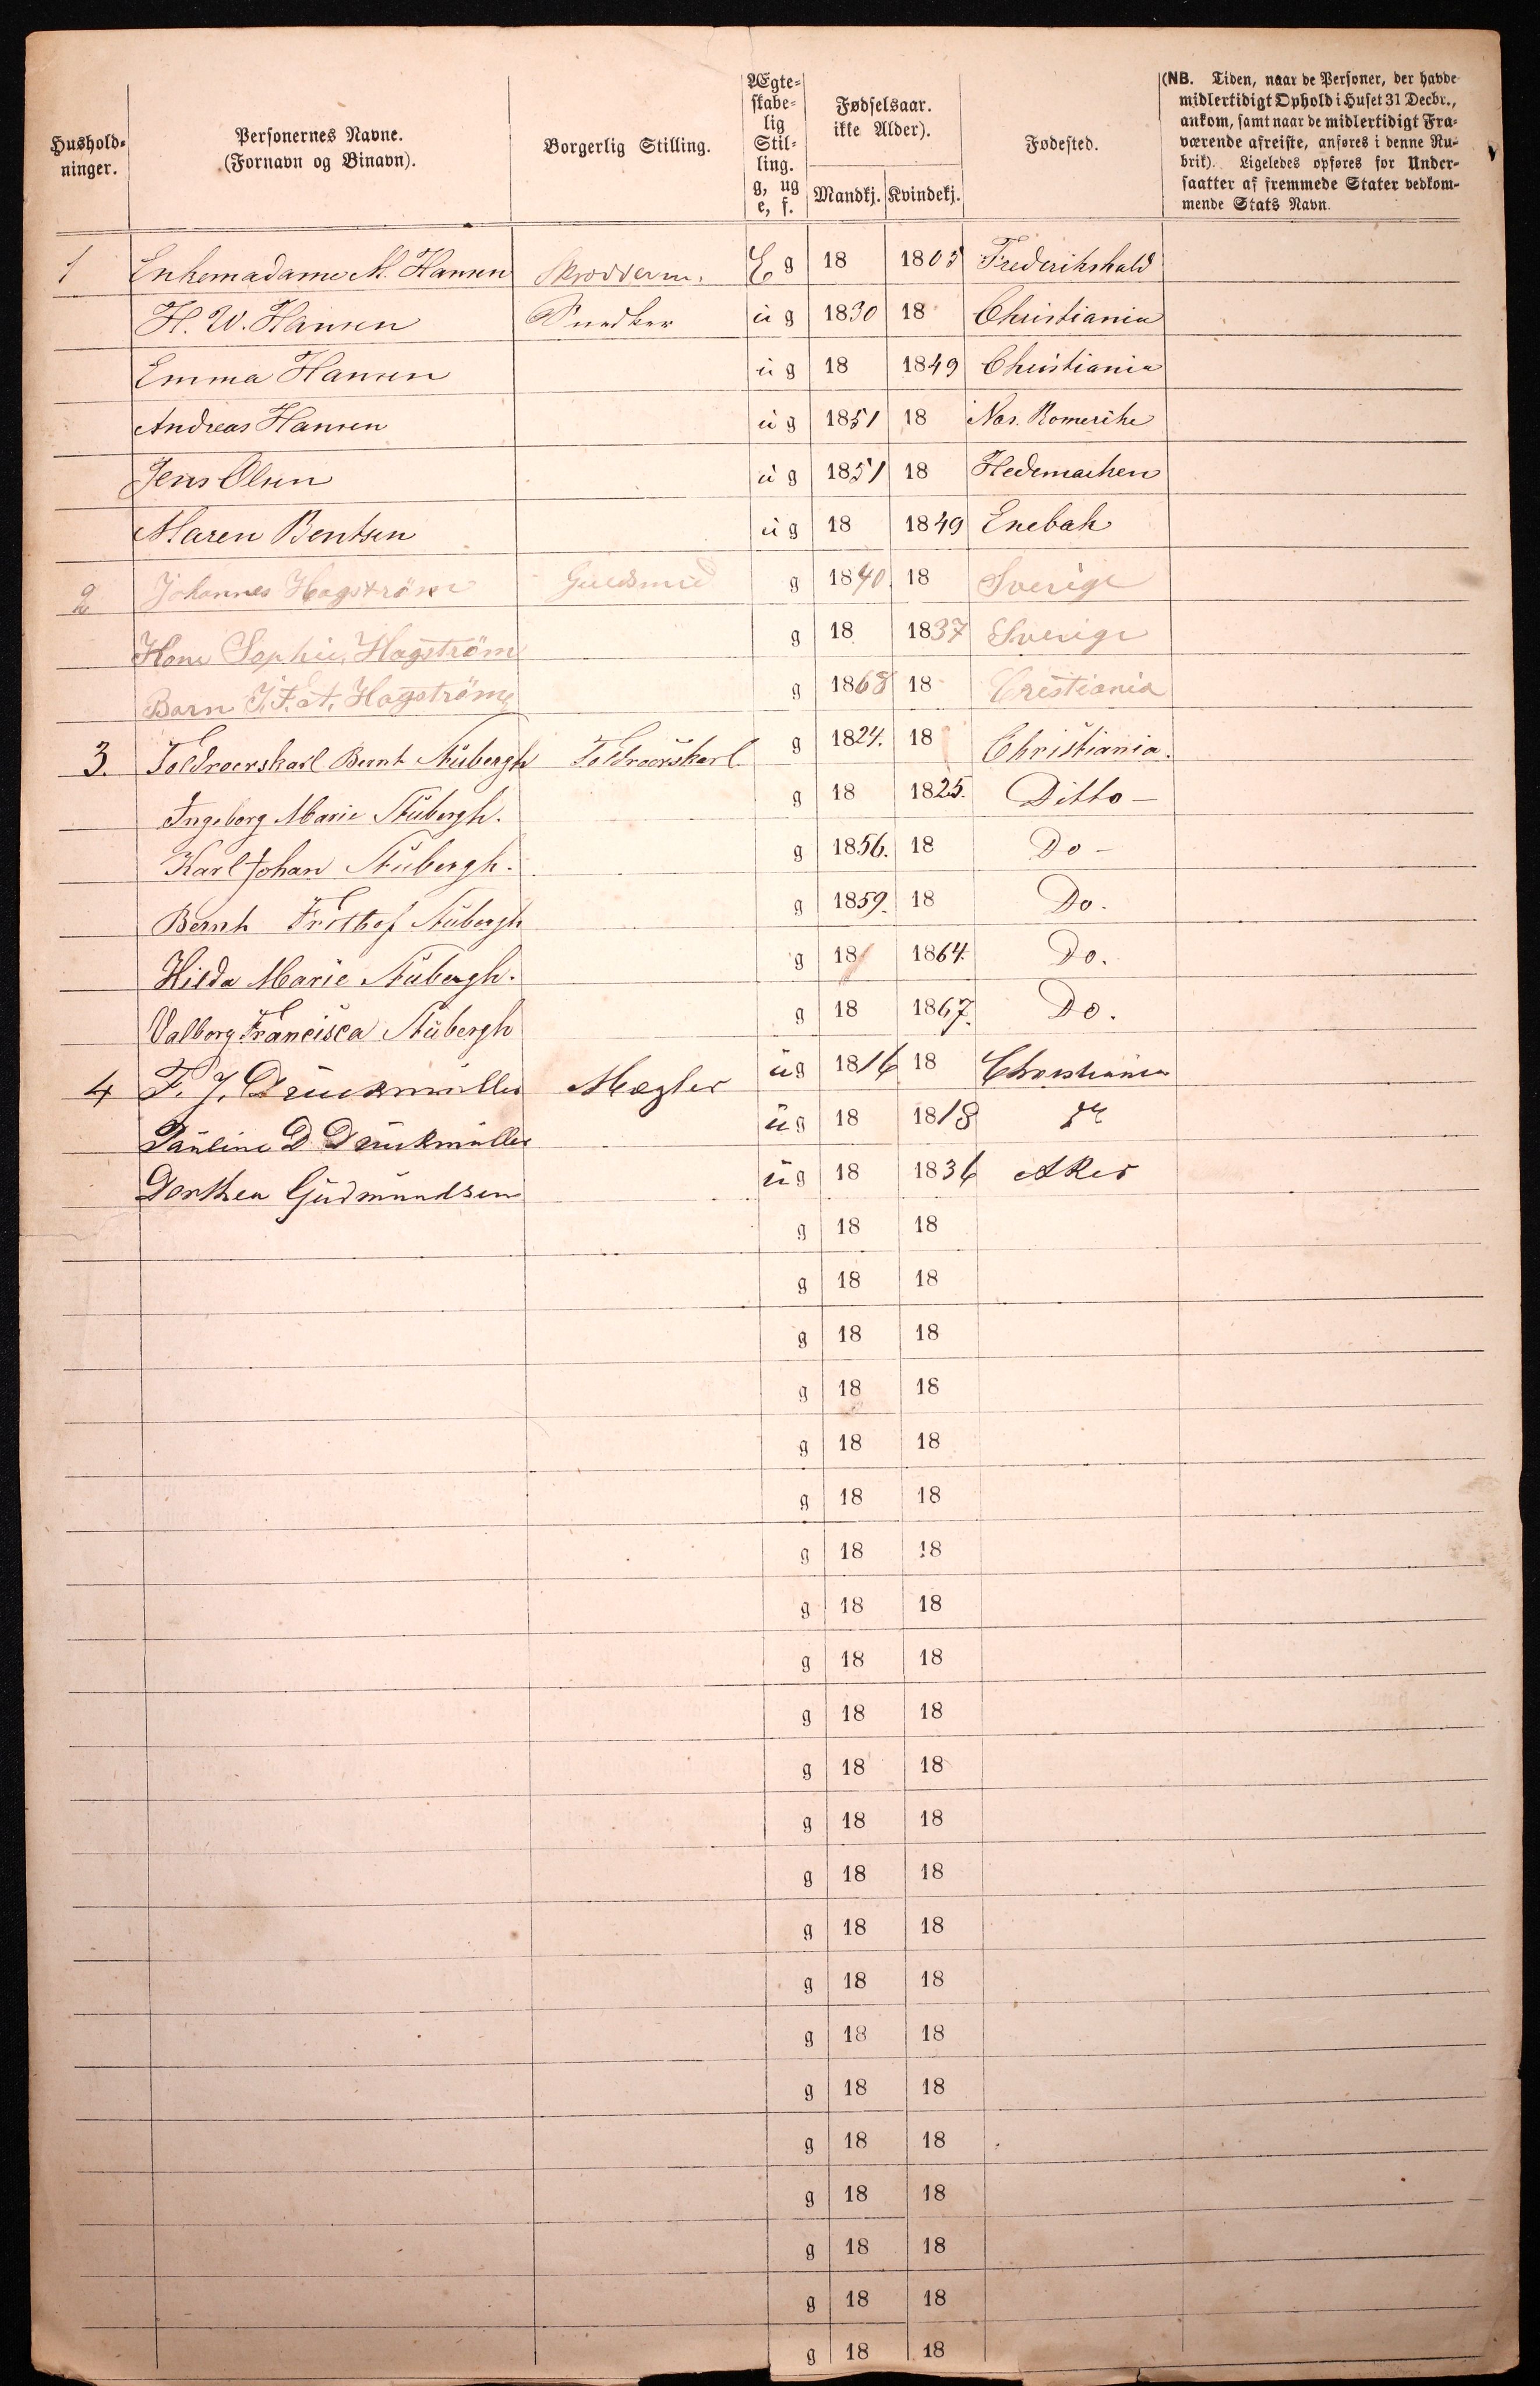 Hushold-
ninger.
Personernes Navne.
(Fornavn og Binavn).
Borgerlig Stilling.
Ægte-
skabe-
lig
Stil-
ling.
g, ug
e, f.
Fødselsaar.
ikke Alder).
Mandkj. Kvindekj.
Fødested.
(NB. Tiden, naar de Personer, der havde
midlertidigt Ophold i Huset 31 Decbr.,
ankom, samt naar de midlertidigt Fra-
værende afreiste, anføres i denne Ru-
brik). Ligeledes opføres for Under-
saatter af fremmede Stater vedkom-
mende Stats Navn.
1 Enkemadame M. Hansen E g 18 1805 Frederikshald
H. W. Hansen Snedker ug 1830 18 Christiania
Emma Hansen ug 18 1849 Christiania
Andreas Hansen ug 1851 18 Romerike
Jens Olsen ug 1851 18 Hedemarken
Maren Bentsen ug 18 1849 Enebak
2 Johannes Hagström Guldsmed g 1840. 18 Sverige
Kone Sophie, Hagström g 18 1837 Sverige
Barn J. F. A. Hagström g 1868 18 Cristiania
3. Toldroerskarl Bernt Stübergh Toldroerskarl g 1824. 18 Christiania.
Ingeborg Marie Stübergh. g 18 1825. Ditto –
Karl Johan Stübergh. g 1856. 18 Do –
Bernh Frithof Stübergh g 1859. 18 Do.
Hilda Marie Stübergh. g 18 1864. Do.
Valborg Francisca Stübergh g 18 1867. Do.
4 F. J. Drückmüller Mægler ug 1816 18 Christiania
Pauline D Drückmüller ug 18 1818
Dorthea Gudmundsen ug 18 1836 Aker
g 18 18
g 18 18
g 18 18
g 18 18
g 18 18
g 18 18
g 18 18
g 18 18
g 18 18
g 18 18
g 18 18
g 18 18
g 18 18
g 18 18
g 18 18
g 18 18
g 18 18
g 18 18
g 18 18
g 18 18
g 18 18
g 18 18